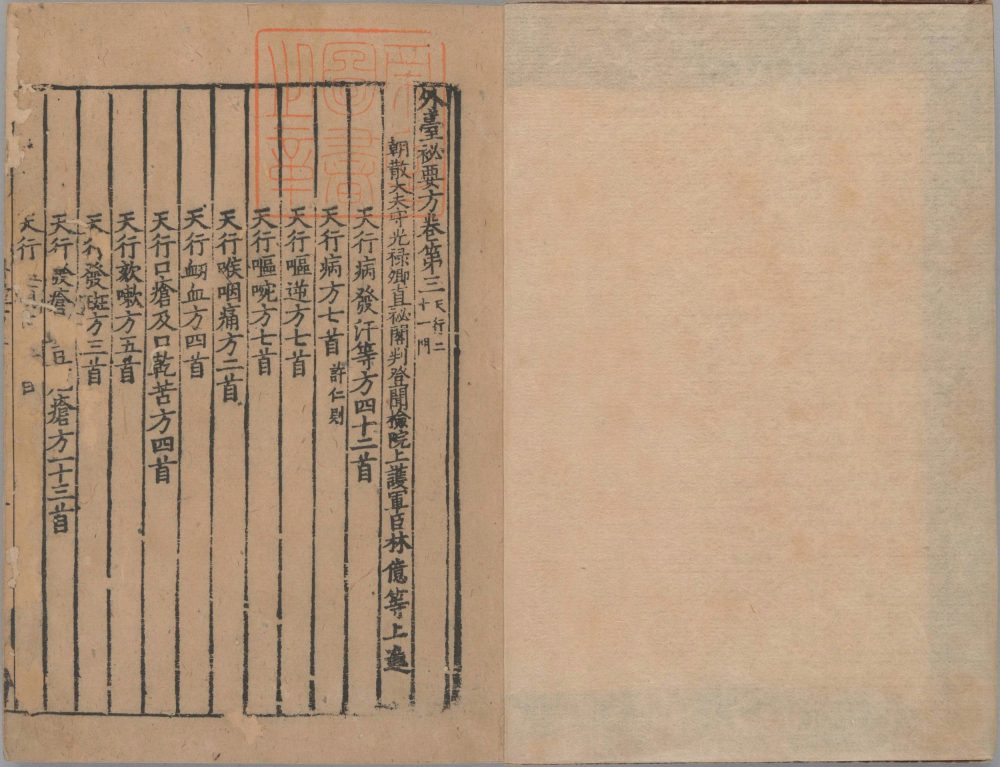 外臺祕要方卷第三 天行二十一門
朝散大夫守光祿卿直祕閣判登聞檢院上護軍臣林億等上進
天行病發汗等方四十二首
天行病方七首 許仁則
天行嘔逆方七首
天行嘔啘方七首
天行喉咽痛方二首
天行衂血方四首
天行口瘡及口乾苦方四首
天行欬嗽方五首
天行發斑方三首
天行發瘡 瘡方一十三首
天行